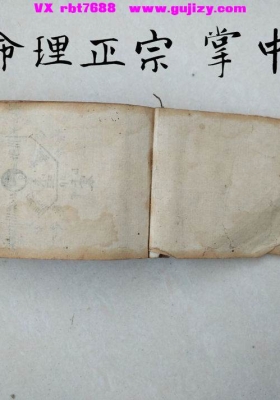 VX rbt7688 www.gujizy.com
命理正宗掌中